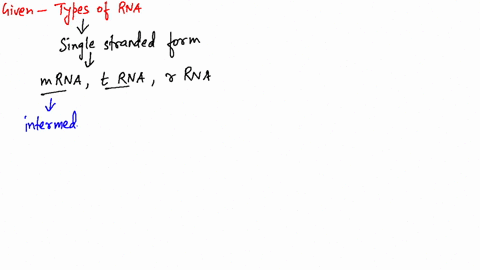 Given - Types of RNA
Single stranded form
mRNA, t RNA, r RNA
intermed